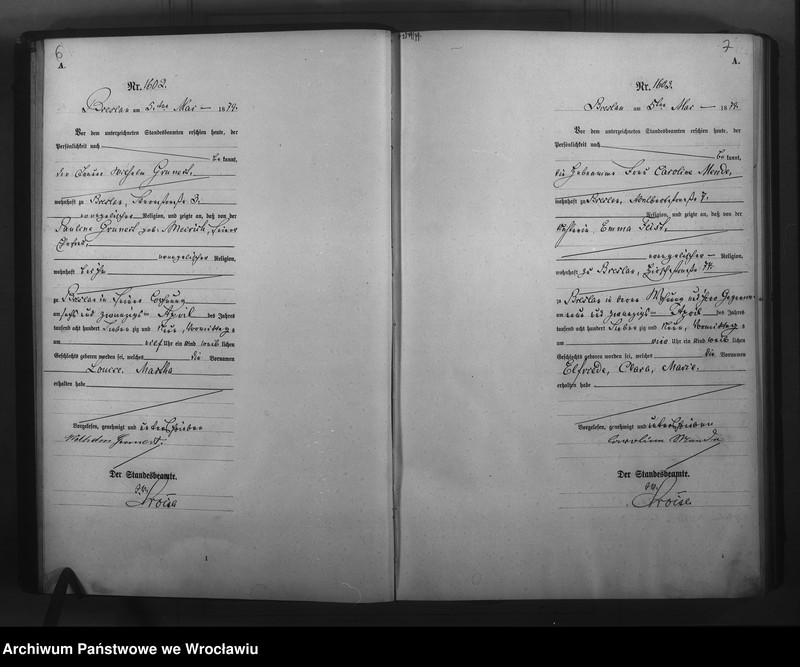 6
A.
Nr. 1602.
Breslau am 5ten Mai 1879.
Vor dem unterzeichneten Standesbeamten erschien heute, der
Persönlichkeit nach
be kannt,
der Wilhelm Grunert,
wohnhaft zu Breslau, 3.
evangelischer Religion, und zeigte an, daß von der
Pauline Grunert geb. seiner
Ehefrau,
evangelischer Religion,
wohnhaft bei ihm
zu Breslau in seiner Wohnung
am sechs und zwanzigsten April des Jahres
tausend acht hundert sieben zig und neun, Vormittags
um elf Uhr ein Kind weib lichen
Geschlechts geboren worden sei, welches die Vornamen
Martha
erhalten habe
Vorgelesen, genehmigt und unterschrieben
Wilhelm Grunert.
Der Standesbeamte.
1
7
A.
Nr. 1603.
Breslau am 5ten Mai 1879.
Vor dem unterzeichneten Standesbeamten erschien heute, der
Persönlichkeit nach
be kannt,
die Hebeamme Frau Caroline Mende,
wohnhaft zu Breslau, 7.
Religion, und zeigte an, daß von der
Emma
evangelischer Religion,
wohnhaft zu Breslau, Hirschstraße 74.
zu Breslau in deren Wohnung und ihrer Gegenwart
am neun und zwanzigsten April des Jahres
tausend acht hundert sieben zig und neun, Vormittags
um vier Uhr ein Kind weib lichen
Geschlechts geboren worden sei, welches die Vornamen
Elfriede, Clara, Marie.
erhalten habe
Vorgelesen, genehmigt und unterschrieben
Carolina Mende
Der Standesbeamte.
Archiwum Państwowe we Wrocławiu